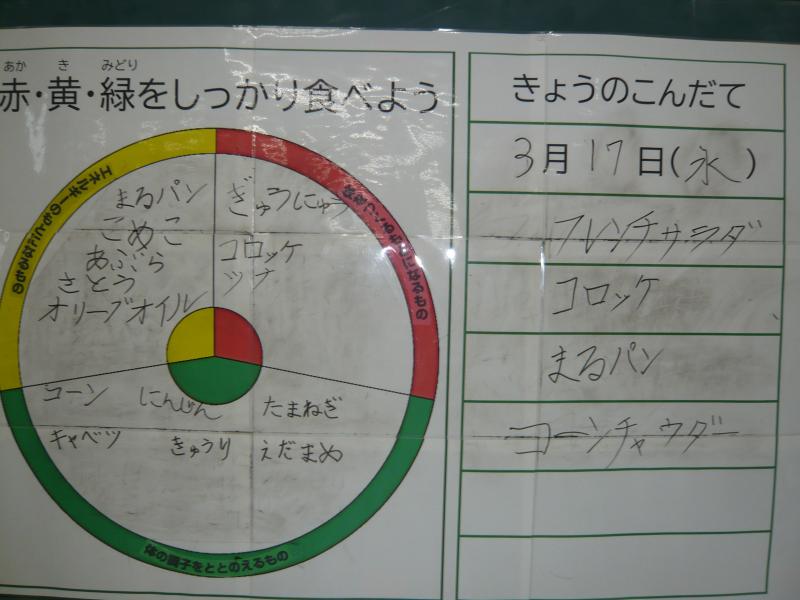 あか き みどり
赤・黄・緑をしっかり食べよう
エネルギーのもとになるもの
まるパン
こめこ
あぶら
さとう
オリーブオイル
ぎゅうにゅう
コロッケ
ツナ
体をつくるもとになるもの
コーン にんじん たまねぎ
キャベツ きゅうり えだまめ
体の調子をととのえるもの
きょうのこんだて
3月17日(水)
フレンチサラダ
コロッケ
まるパン
コーンチャウダー